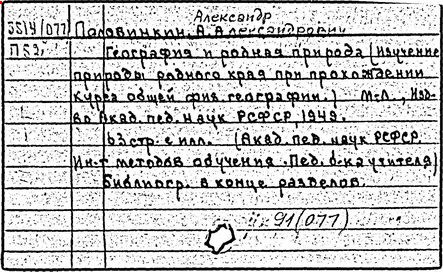 Александр
5514/077 Половинкин, А. Александрович
П52 География и родная природа (Изучение
природы родного края при прохождении
курса общей физ. географии.) М-Л., Изд-
во Акад. пед. наук РСФСР, 1949.
63 стр. с илл. (Акад. пед. наук РСФСР.
Ин-т методов обучения. Пед. б-ка учителя)
Библиогр. в конце разделов.
91(077)